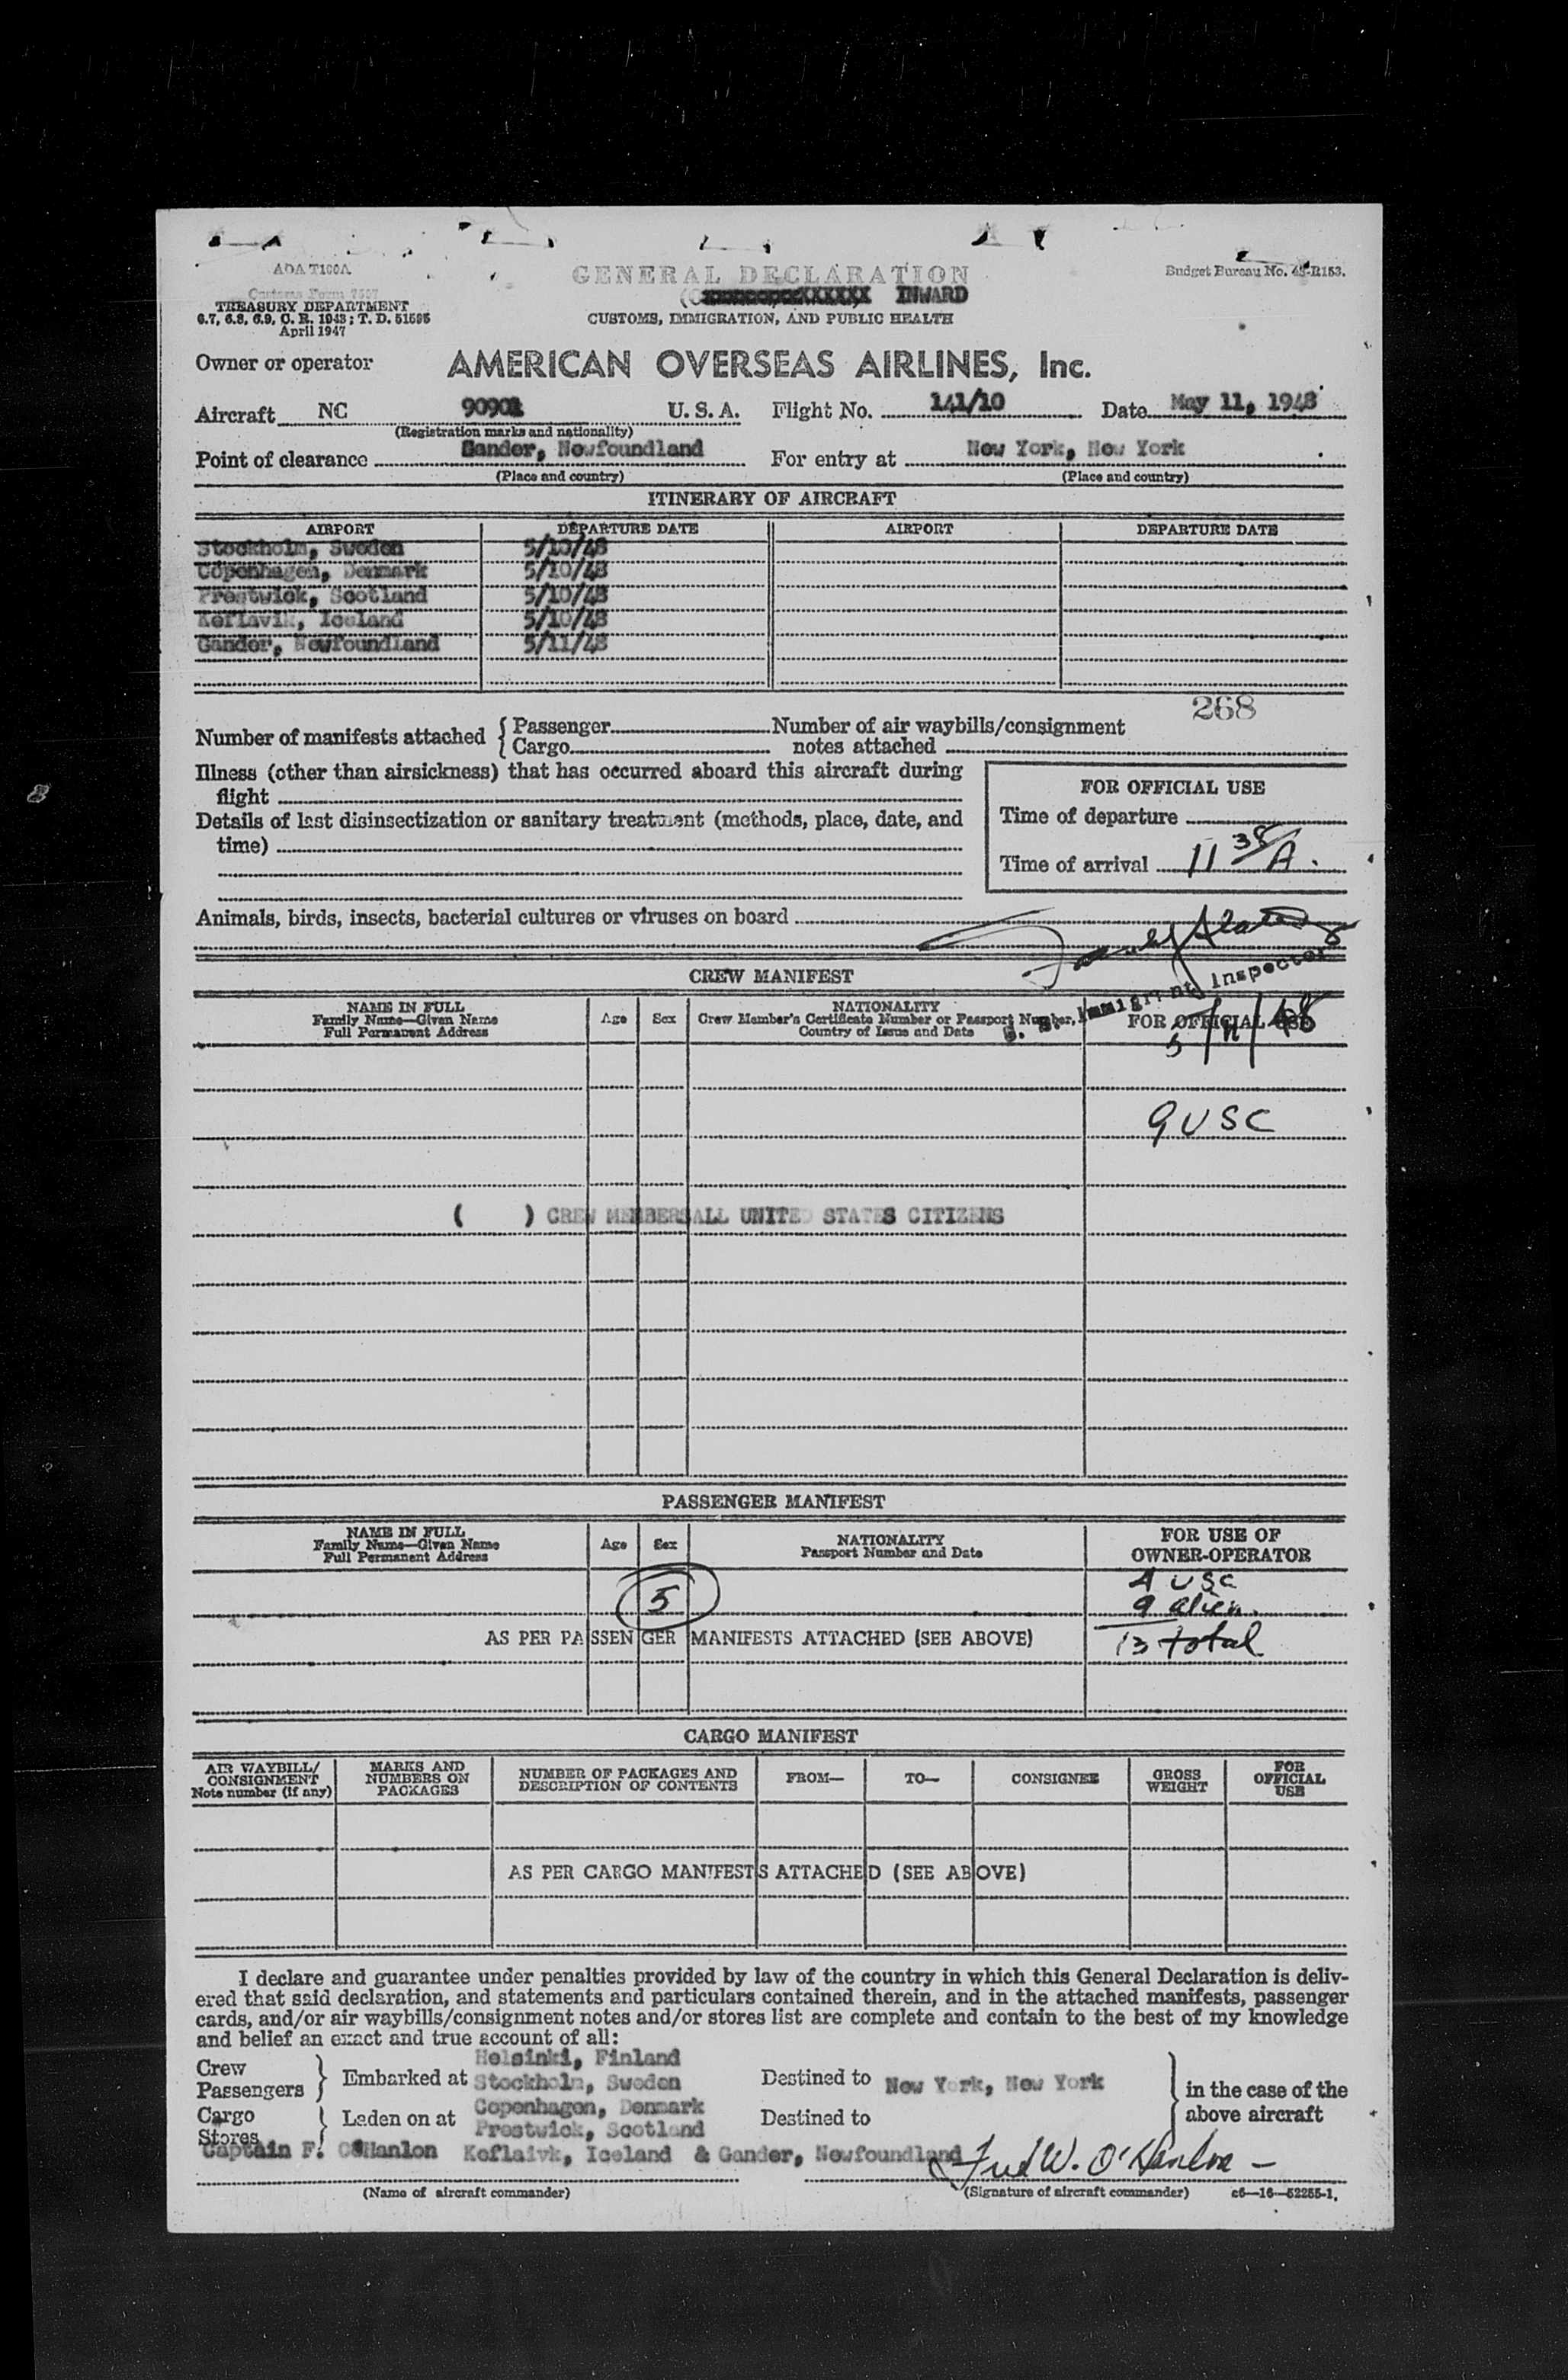 AOA T100A
GENERAL DECLARATION
Budget Bureau No. 48-R153.
Customs Form 7507
INWARD
TREASURY DEPARTMENT
6.7, 6.8, 6.9, C. R. 1943; T. D. 51595
April 1947
CUSTOMS, IMMIGRATION, AND PUBLIC HEALTH
Owner or operator AMERICAN OVERSEAS AIRLINES, Inc.
Aircraft NC 90901 U. S. A. Flight No. 141/10 Date May 11, 1948
(Registration marks and nationality)
Point of clearance Gander, Newfoundland For entry at New York, New York
(Place and country) (Place and country)
ITINERARY OF AIRCRAFT
AIRPORT DEPARTURE DATE AIRPORT DEPARTURE DATE
Stockholm, Sweden 5/10/48
Copenhagen, Denmark 5/10/48
Prestwick, Scotland 5/10/48
Keflavik, Iceland 5/10/48
Gander, Newfoundland 5/11/48
268
Number of manifests attached { Passenger Number of air waybills/consignment
Cargo notes attached
Illness (other than airsickness) that has occurred aboard this aircraft during
flight
FOR OFFICIAL USE
Details of last disinsectization or sanitary treatment (methods, place, date, and
time)
Time of departure
Time of arrival 11 35/A.
Animals, birds, insects, bacterial cultures or viruses on board
U. S. Immigrant Inspector
CREW MANIFEST
NAME IN FULL
Family Name—Given Name
Full Permanent Address
Age Sex
NATIONALITY
Crew Member's Certificate Number or Passport Number,
Country of Issue and Date
FOR OFFICIAL USE
5/11/48
9 USC
( ) CREW MEMBERS ALL UNITED STATES CITIZENS
PASSENGER MANIFEST
NAME IN FULL
Family Name—Given Name
Full Permanent Address
Age Sex
NATIONALITY
Passport Number and Date
FOR USE OF
OWNER-OPERATOR
5
4 USC
9 alien.
13 total
AS PER PASSENGER MANIFESTS ATTACHED (SEE ABOVE)
CARGO MANIFEST
AIR WAYBILL/
CONSIGNMENT
Note number (if any)
MARKS AND
NUMBERS ON
PACKAGES
NUMBER OF PACKAGES AND
DESCRIPTION OF CONTENTS
FROM—
TO—
CONSIGNEE
GROSS
WEIGHT
FOR
OFFICIAL
USE
AS PER CARGO MANIFESTS ATTACHED (SEE ABOVE)
I declare and guarantee under penalties provided by law of the country in which this General Declaration is deliv-
ered that said declaration, and statements and particulars contained therein, and in the attached manifests, passenger
cards, and/or air waybills/consignment notes and/or stores list are complete and contain to the best of my knowledge
and belief an exact and true account of all:
Helsinki, Finland
Crew
Passengers } Embarked at Stockholm, Sweden Destined to New York, New York } in the case of the
Copenhagen, Denmark
Cargo
Stores } Laden on at Prestwick, Scotland Destined to above aircraft
Captain F. O'Hanlon Keflaivk, Iceland & Gander, Newfoundland Fred W. O'Hanlon
(Name of aircraft commander) (Signature of aircraft commander) c6—16—52255-1.